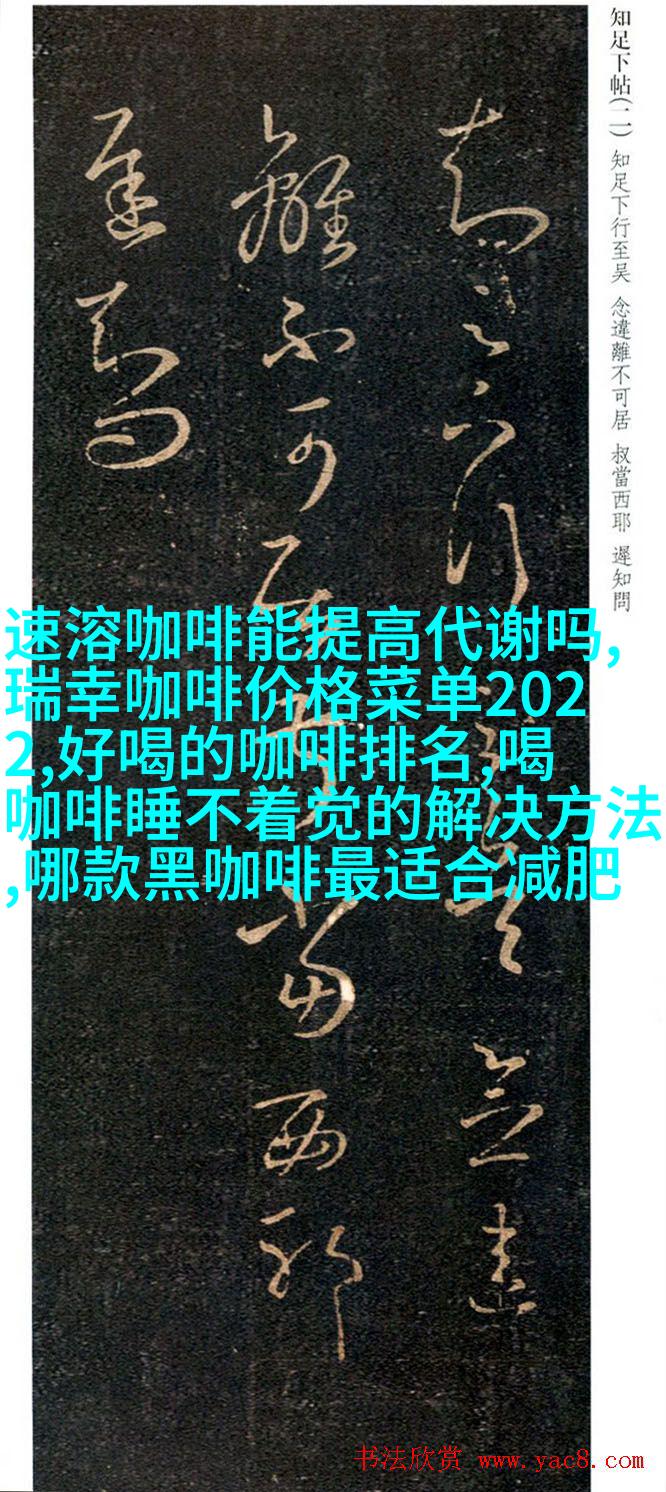 知足下帖(二) 知足下行至吴 念違離不可居 叔當西耶 遲知問
知足下行至吴念違
離不可居叔當西耶
遲知問
速溶咖啡能提高代谢吗,
瑞幸咖啡价格菜单202
2,好喝的咖啡排名,喝
咖啡睡不着觉的解决方法
,哪款黑咖啡最适合减肥
书法欣赏 www.yac8.com